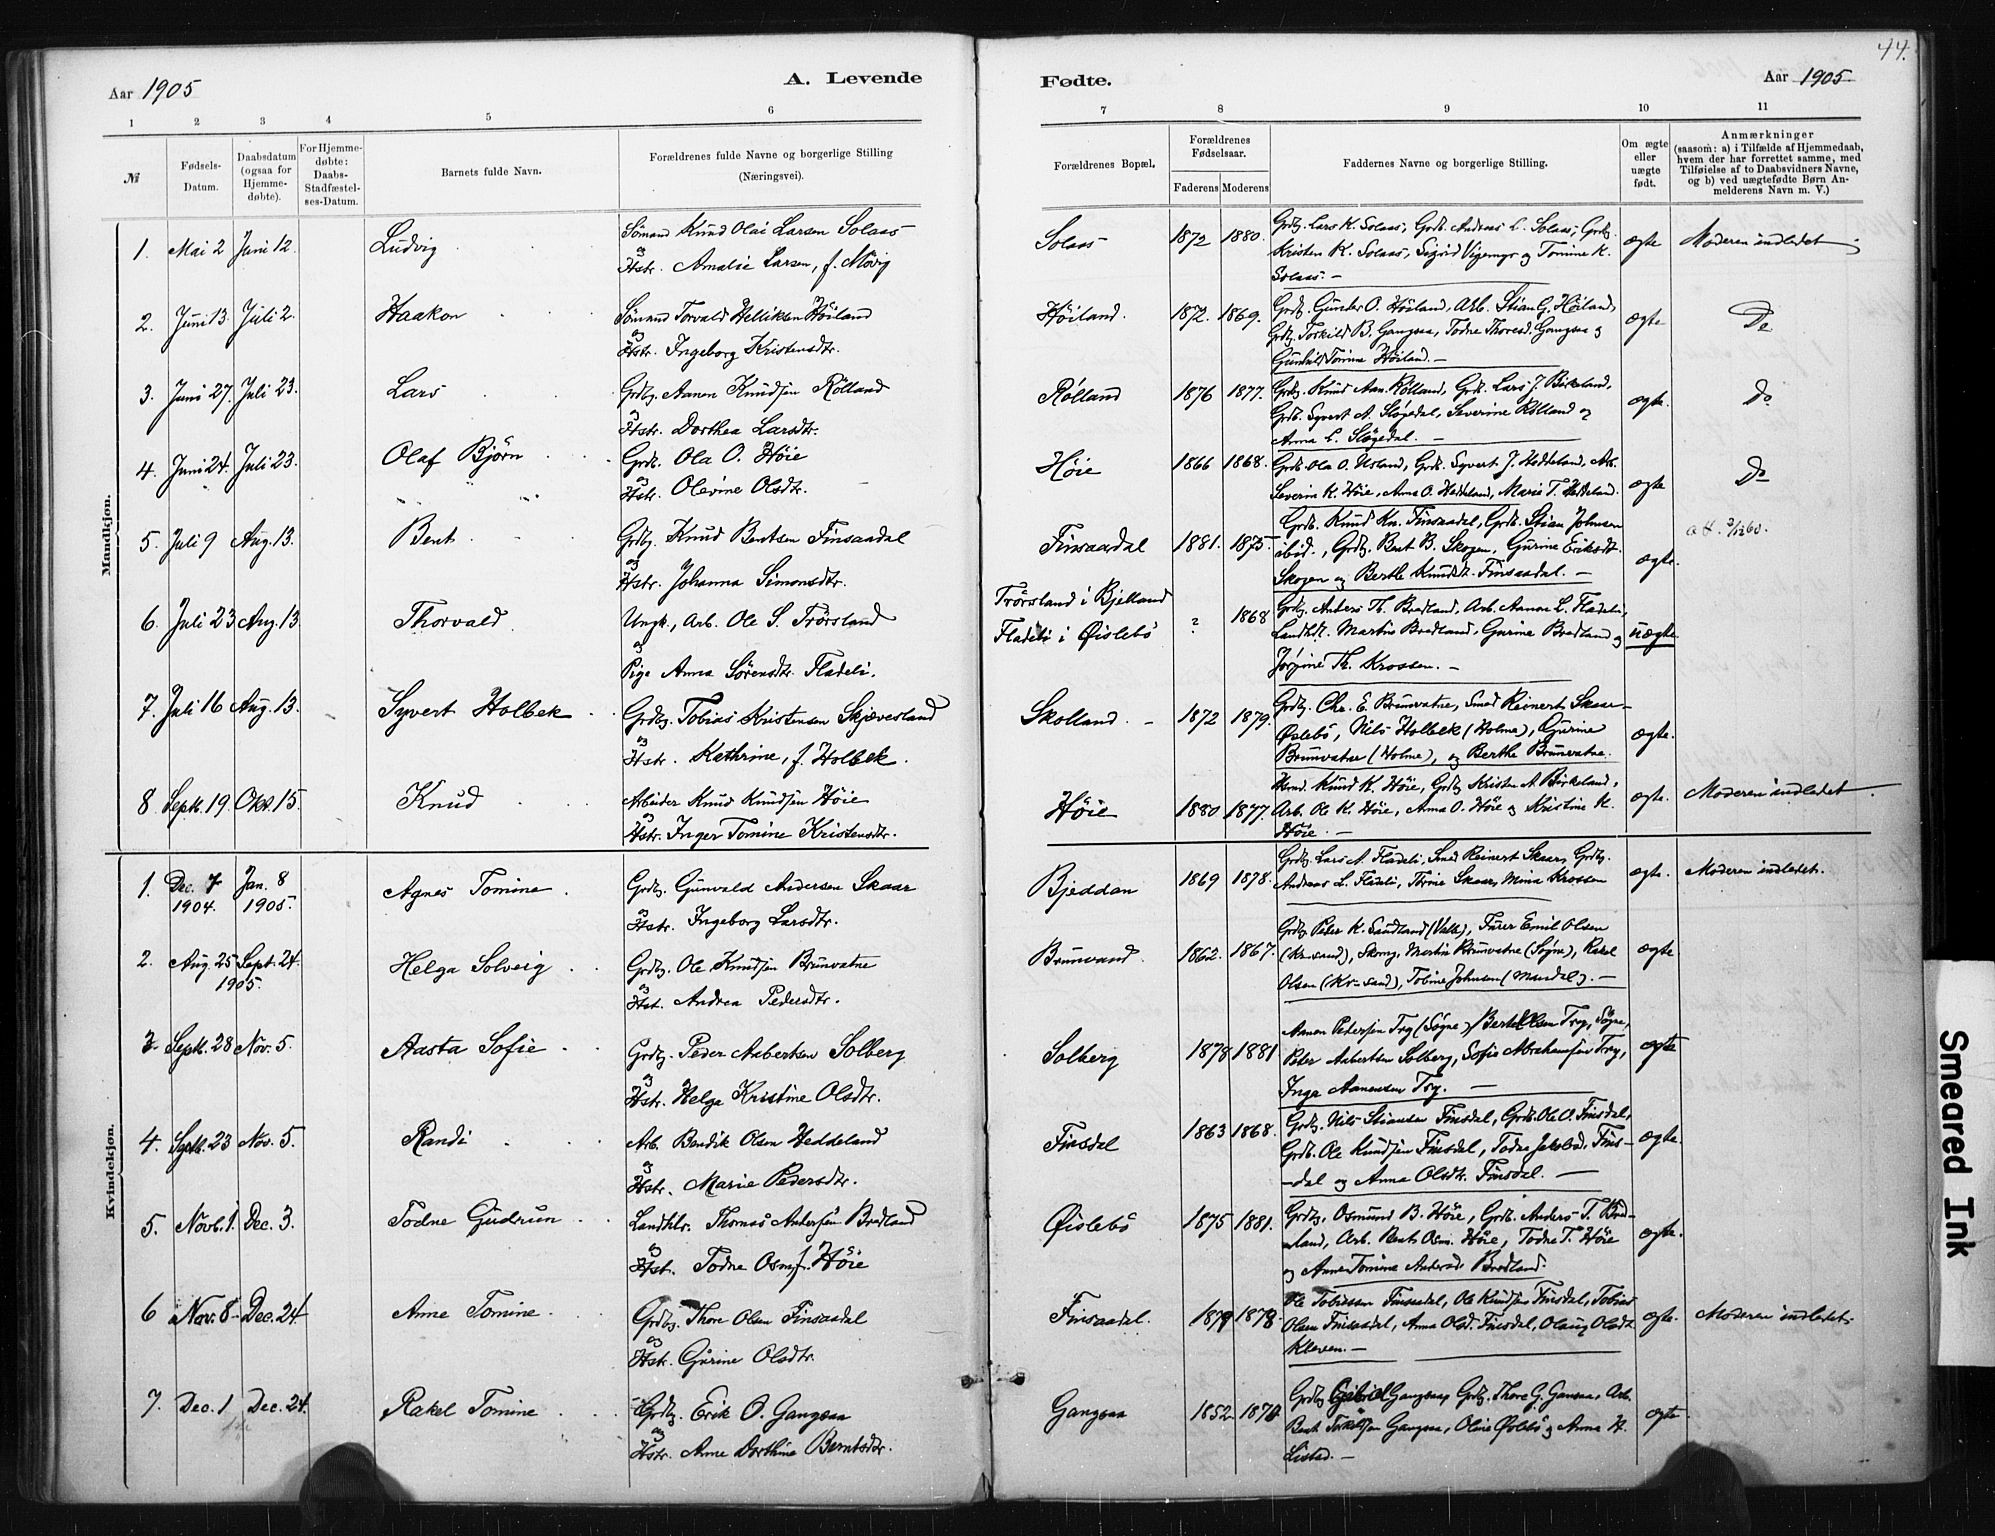 44.
Aar 1905
A. Levende
Fødte.
Aar 1905.
1 2 3 4 5 6 7 8 9 10 11
№
Fødsels-
Datum.
Daabsdatum
(ogsaa for
Hjemme-
døbte).
For Hjemme-
døbte:
Daabs-
Stadfæstel-
ses-Datum.
Barnets fulde Navn.
Forældrenes fulde Navne og borgerlige Stilling
(Næringsvei).
Forældrenes Bopæl.
Forældrenes
Fødselsaar.
Faderens Moderens
Faddernes Navne og borgerlige Stilling.
Om ægte
eller
uægte
født.
Anmærkninger
(saasom: a) i Tilfælde af Hjemmedaab,
hvem der har forrettet samme, med
Tilføielse af to Daabsvidners Navne,
og b) ved uægtefødte Børn An-
melderens Navn m. V.)
Mandkjøn.
1. Mai 2 Juni 12. Ludvig
Sømand Knud Olai Larsen Solaas
og
Hstr. Amalie Larsen, f. Møvig
Solaas 1872 1880.
Grdbr. Lars K. Solaas, Grdb. Andreas L. Solaas, Grdbr.
Kristen K. Solaas, Sigrid Vigemyr og Tomine K.
Solaas. —
ægte Moderen indledet
2. Juni 13. Juli 2. Haakon
Sømand Torvald Helliksen Höiland
og
Hstr. Ingeborg Kristensdtr.
Höiland. 1872. 1869.
Grdb. Gunder O. Höiland, Arb. Stian G. Höiland,
Grdb. Torkild B. Gangsaa, Todne Thoresd. Gangsaa og
Gunhild Tomine Höiland. —
ægte Do
3. Juni 27. Juli 23. Lars
Grdbr. Aanen Knudsen Rölland
og
Hstr. Dorthea Larsdtr.
Rölland 1876 1877.
Grdbr. Knud Aan. Rölland, Grdb. Lars J. Birkeland,
Grdb. Syvert A. Slögedal, Severine Rölland og
Anna L. Slögedal. —
ægte. Do
4. Juni 24. Juli 23. Olaf Björn
Grdb. Ola O. Höie
og
Hstr. Olevine Olsdtr.
Höie 1866 1868.
Grdb. Ola O. Usland, Grdb. Syvert J. Heddeland, Arb.
Severin K. Höie, Anna O. Heddeland, Marie T. Heddeland.
ægte Do
5. Juli 9 Aug. 13. Bent
Grdbr. Knud Bentsen Finsaadal
og
Hstr. Johanna Simonsdtr.
Finsaadal 1881. 1875.
Grdb. Knud Kn. Finsaadal, Grdb. Stian Johnsen
ibid., Grdbr. Bent B. Skogen, Gurine Eriksdt.
Skogen og Berthe Knudsdt. Finsaadal. —
ægte.
6. Juli 23 Aug. 13 Thorvald.
Ungk., Arb. Ole S. Trörsland
og
Pige Anna Sörensdtr. Fladeli.
Trörsland i Bjelland
Fladeli i Öislebö
? 1868
Grdbr. Anders Th. Bredland, Arb. Aanon L. Fladeli,
Landhdl. Martin Bredland, Gurine Bredland og
Jörgine Th. Krossen. —
uægte
7. Juli 16 Aug. 13. Syvert Holbek
Grdbr. Tobias Kristensen Skjævesland
og
Hstr. Kathrine, f. Holbek.
Skolland. — 1872 1879.
Grdbr. Chr. E. Brunvatne, Smed Reinert Skaar
Öslebö, Nils Holbek (Holme), Gurine
Brunvatne (Holme), og Berthe Brunvatne.
ægte.
8 Sept. 19. Okt. 15. Knud
Arbeider Knud Knudsen Höie
og
Hstr. Inger Tomine Kristensdtr.
Höie 1880 1877.
Knud K. Höie, Grdbr. Kristen A. Birkeland,
Arb. Ole K. Höie, Anna O. Höie og Kristine K.
Höie. —
ægte. Moderen indledet.
Kvindekjøn.
1. Dec. 7 Jan. 8 Agnes Tomine
1904. 1905.
Grdbr. Gunvald Andersen Skaar
og
Hstr. Ingeborg Larsdtr.
Bjeddan 1869 1878.
Grdbr. Lars A. Fladeli, Smed Reinert Skaar, Grdbr.
Andreas L. Fladeli, Tomine Skaar, Mina Krossen
ægte. Moderen indledet.
2. Aug. 25 Sept. 24. Helga Solveig
1905.
Grdbr. Ole Knudsen Brunvatne
og
Hstr. Andrea Pedersdtr.
Brunvand. 1862. 1867.
Grdbr. Peter K. Sandland (Valle), Fürer Emil Olsen
(Kr-sand), Skomg. Martin Brunvatne (Søgne), Rakel
Olsen (Kr-sand), Tobine Johnsen (Mandal). —
ægte.
3. Sept. 28 Nov. 5. Aasta Sofie
Grdbr. Peder Aasbertsen Solberg
og
Hstr. Helga Kristine Olsdtr.
Solberg 1878 1881.
Aanen Petersen Try (Søgne) Bertel Olsen Try, Søgne,
Peter Aasbertsen Solberg, Sofie Abrahamsen Try,
Inga Aanensen Try. —
ægte
4. Sept. 23 Nov. 5. Randi
Arb. Bendik Olsen Heddeland
og
Hstr. Marie Pedersdtr.
Finsdal 1863 1868.
Grdbr. Nils Stiansen Finsdal, Grdb. Ole O. Finsdal,
Grdb. Ole Knudsen Finsdal, Todne Jakobsd. Fins-
-dal og Anna Olsdtr. Finsdal. —
ægte.
5. Novb. 1. Dec. 3. Todne Gudrun
Landhlr. Thomas Andersen Bredland
og
Hstr. Todne Osm. f. Höie
Öislebö 1875 1881.
Grdbr. Osmund B. Höie, Grdb. Anders T. Bred-
-land, Arb. Bent Osm. Höie, Todne T. Höie
og Anne Tomine Andersd. Bredland.
ægte.
6 Nov. 8 Dec. 24 Anne Tomine
Grdbr. Thore Olsen Finsaadal
og
Hstr. Gurine Olsdtr.
Finsaadal. 1879 1878
Ole Tobiassen Finsaadal, Ole Knudsen Finsdal, Tobias
Olsen Finsaadal, Anna Olsd. Finsdal, Olaug Olsdt.
Kleven. —
ægte. Moderen indledet.
7. Dec. 1 Dec. 24. Rakel Tomine
Grdbr. Erik O. Gangsaa
og
Hstr. Anne Dorthine Berntsdtr.
Gangsaa 1852 1870
Grdbr. Gabriel Gangsaa, Grdbr. Thore G. Gansaa, Arb.
Bent Torkelsen Gangsaa, Oline Öslebö og Anna H.
Listad. —
ægte
Smeared Ink